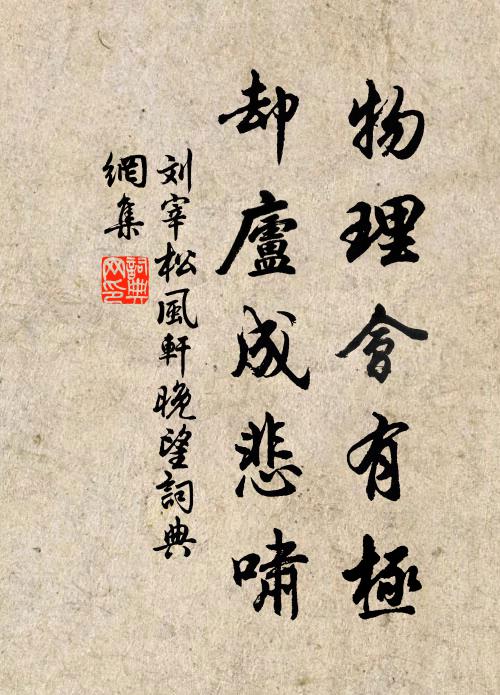 物理會有極
却廬成悲嘯
刘宰松風軒晚望詞典
網集
詞典網印